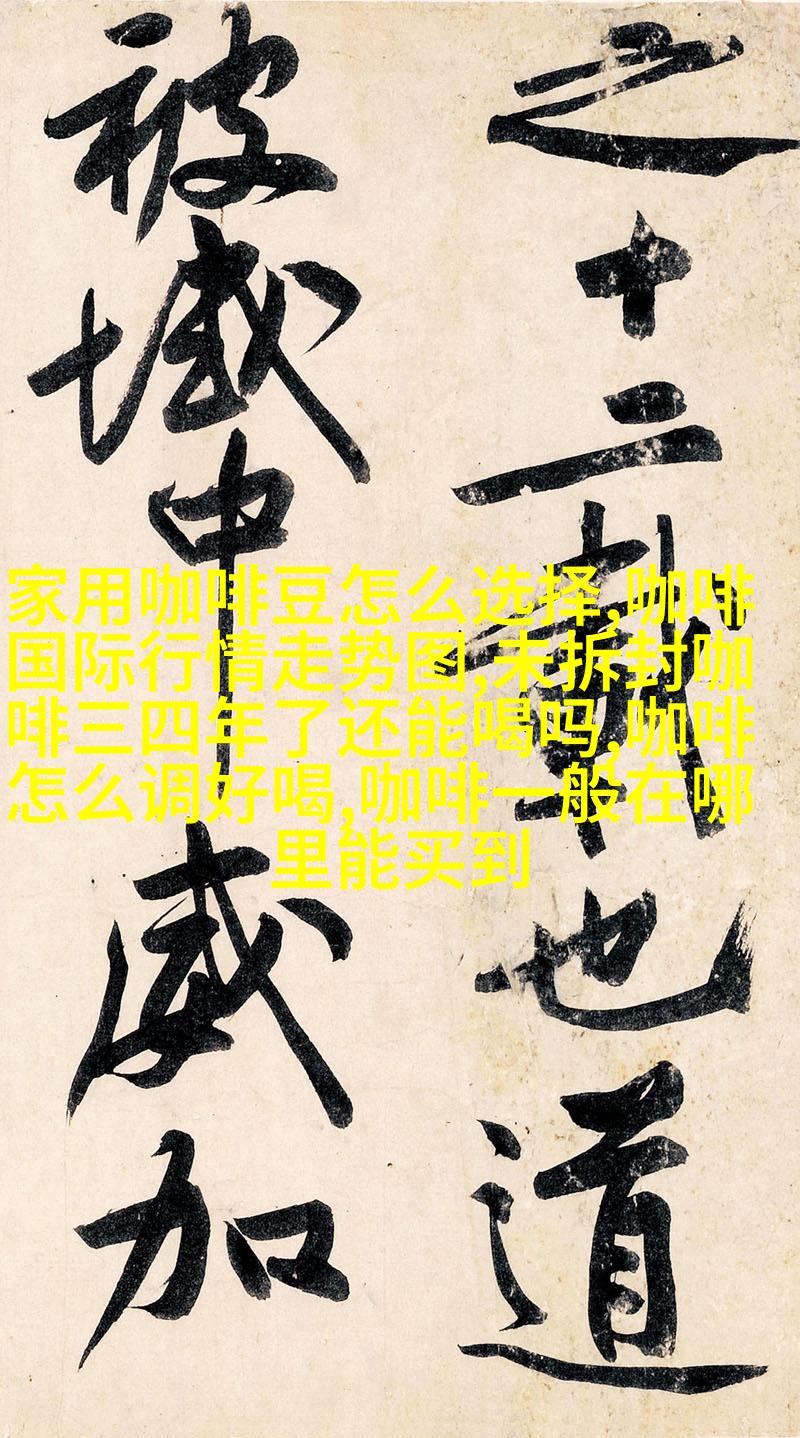 之十二载也道
被域中威加
家用咖啡豆怎么选择,咖啡
国际行情走势图,未拆封咖
啡三四年了还能喝吗,咖啡
怎么调好喝,咖啡一般在哪
里能买到